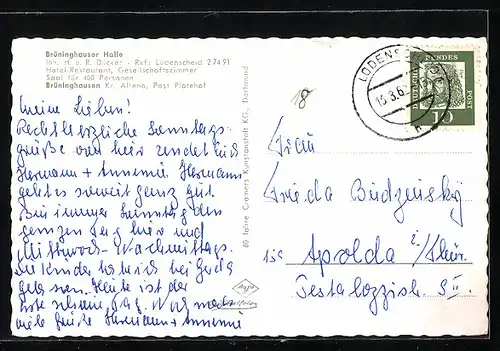 Brüninghauser Halle
Inh. H. u. R. Dücker - Ruf: Lüdenscheid 27491
Hotel-Restaurant, Gesellschaftszimmer
Saal für 400 Personen
Brüninghausen Kr. Altena, Post Platehof
60 Jahre Cramers Kunstanstalt KG., Dortmund
18
LÜDENS
13.3.6
DEUTSCHE BUNDESPOST
10
Meine Lieben!
Recht herzliche Sonntags-
grüße von hier sendet Euch
Hermann + Annemie. Hermann
geht es soweit ganz gut.
Bin immer Sonntag den
ganzen Tag hier und
Mittwoch-Nachmittags.
Die Kinder habe ich bei Gerda
gelassen. Heute ist der
erste schöne Tag. Noch mals
viele Grüße Hermann + Annemie
Frau
Frieda Budzinsky
Apolda i/Thür.
Pestalozzistr.